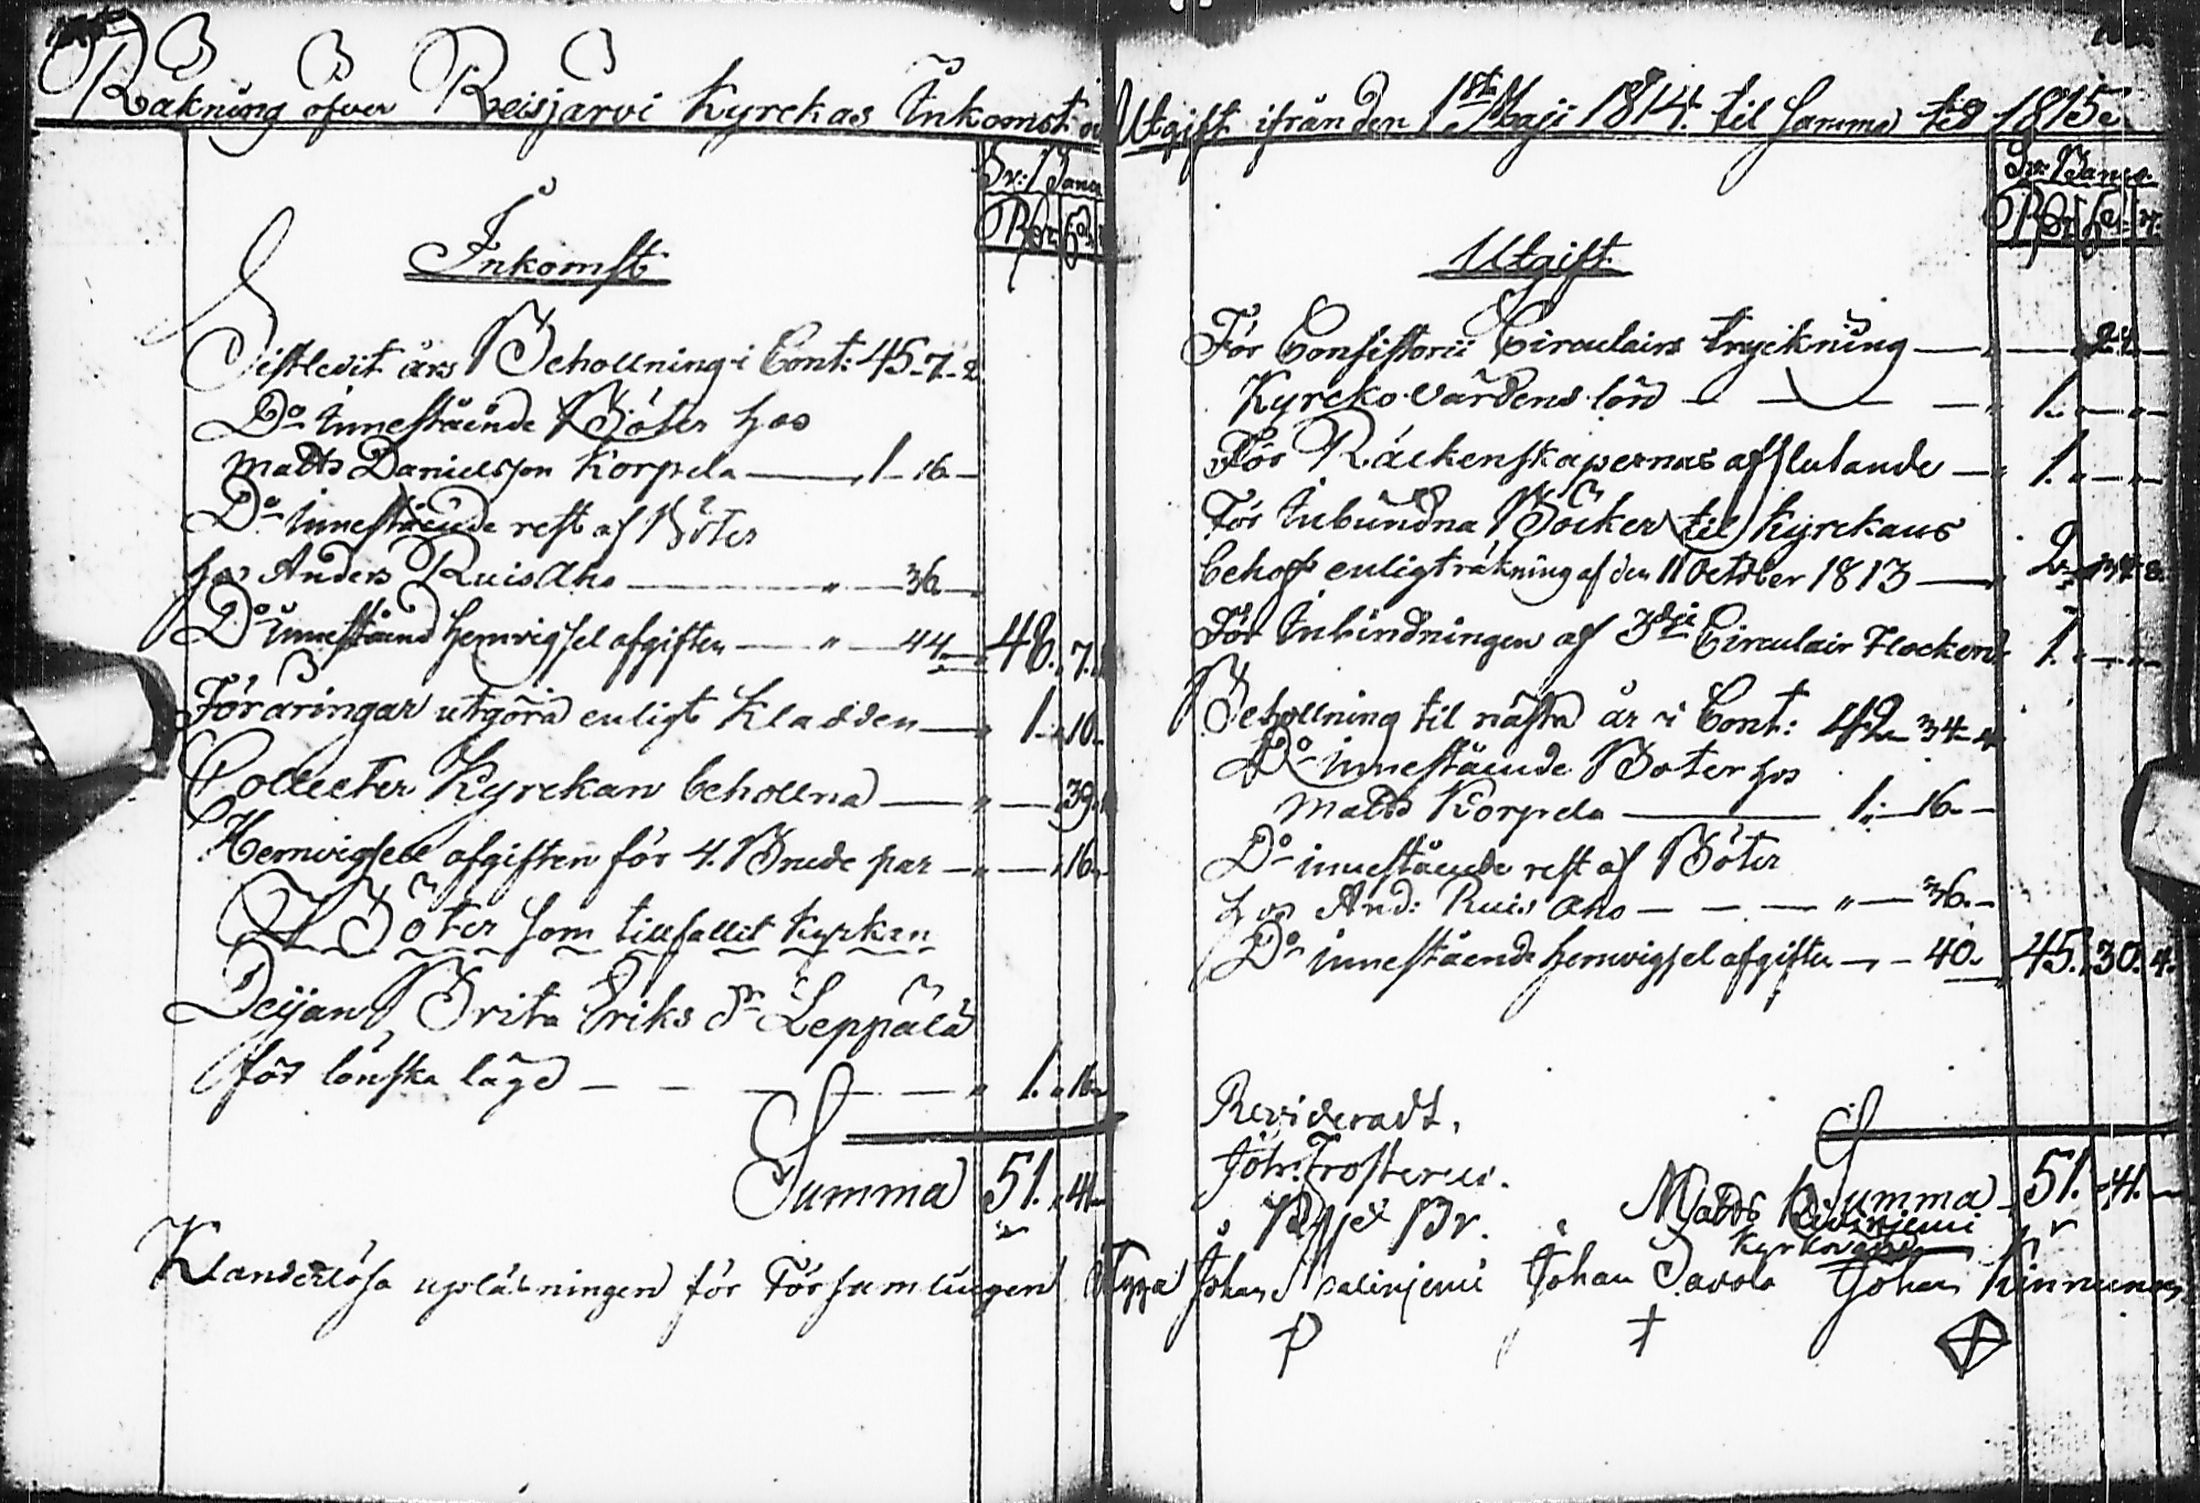 Räkning öfver Reisjärvi Kyrckas Inkomst o Utgift ifrån den 1sta Maji 1814. til samma tid 1815.
Sv: Banco
Rdr sk
Inkomst
Sistledit års Behollning i Cont: 45-7-2
Do Innestående Böter hos
Matts Danielsson Korpela — 1-16-
Do Innestående rest af Böter
hos Anders Ruis Aho — " — 36 —
Do innestående hemvigsel afgiften — " — 44 — 48. 7.
Föräringar utgöra enligt Kladden — 1. 10.
Collecter Kyrckan behollna — " — 39.
Hemvigsell afgiften för 4. Brude par — " — 16.
Böter som tillfallit kyrkan
Peijan Brita Eriks dr Leppälä
för lönska läge — — — — 1. 16.
Summa 51. 41.
Klanderlösa upläsningen för Församlingen
Sv: Banco.
Rdr sk: r:
Utgift
För Consistorii Circulairs tryckning — " — 24 —
Kyrcko Värdens lön — — — 1. " — " —
För Räckenskapernas afslutande — 1. " — " —
För Inbundna Böcker til Kyrckans
behof enligt räkning af den 11 October 1813 — 2. 34. 8.
För Inbindningen af 3dje Circulair Flocken 1. — " —
Behollning til nästa år i Cont: 42-34-4
Do Innestående Böter hos
Matts Korpela — 1: — 16. —
Do innestående rest af Böter
hos And: Ruis Aho — — — " — 36. —
Do innestående hemvigsel afgiften — — 40. 45. 30. 4.
Revideradt,
Joh: Frosterus.
Summa 51. 41. —
Matts
Kyrkovärd
Johan Johan Savola Johan Kinnunen